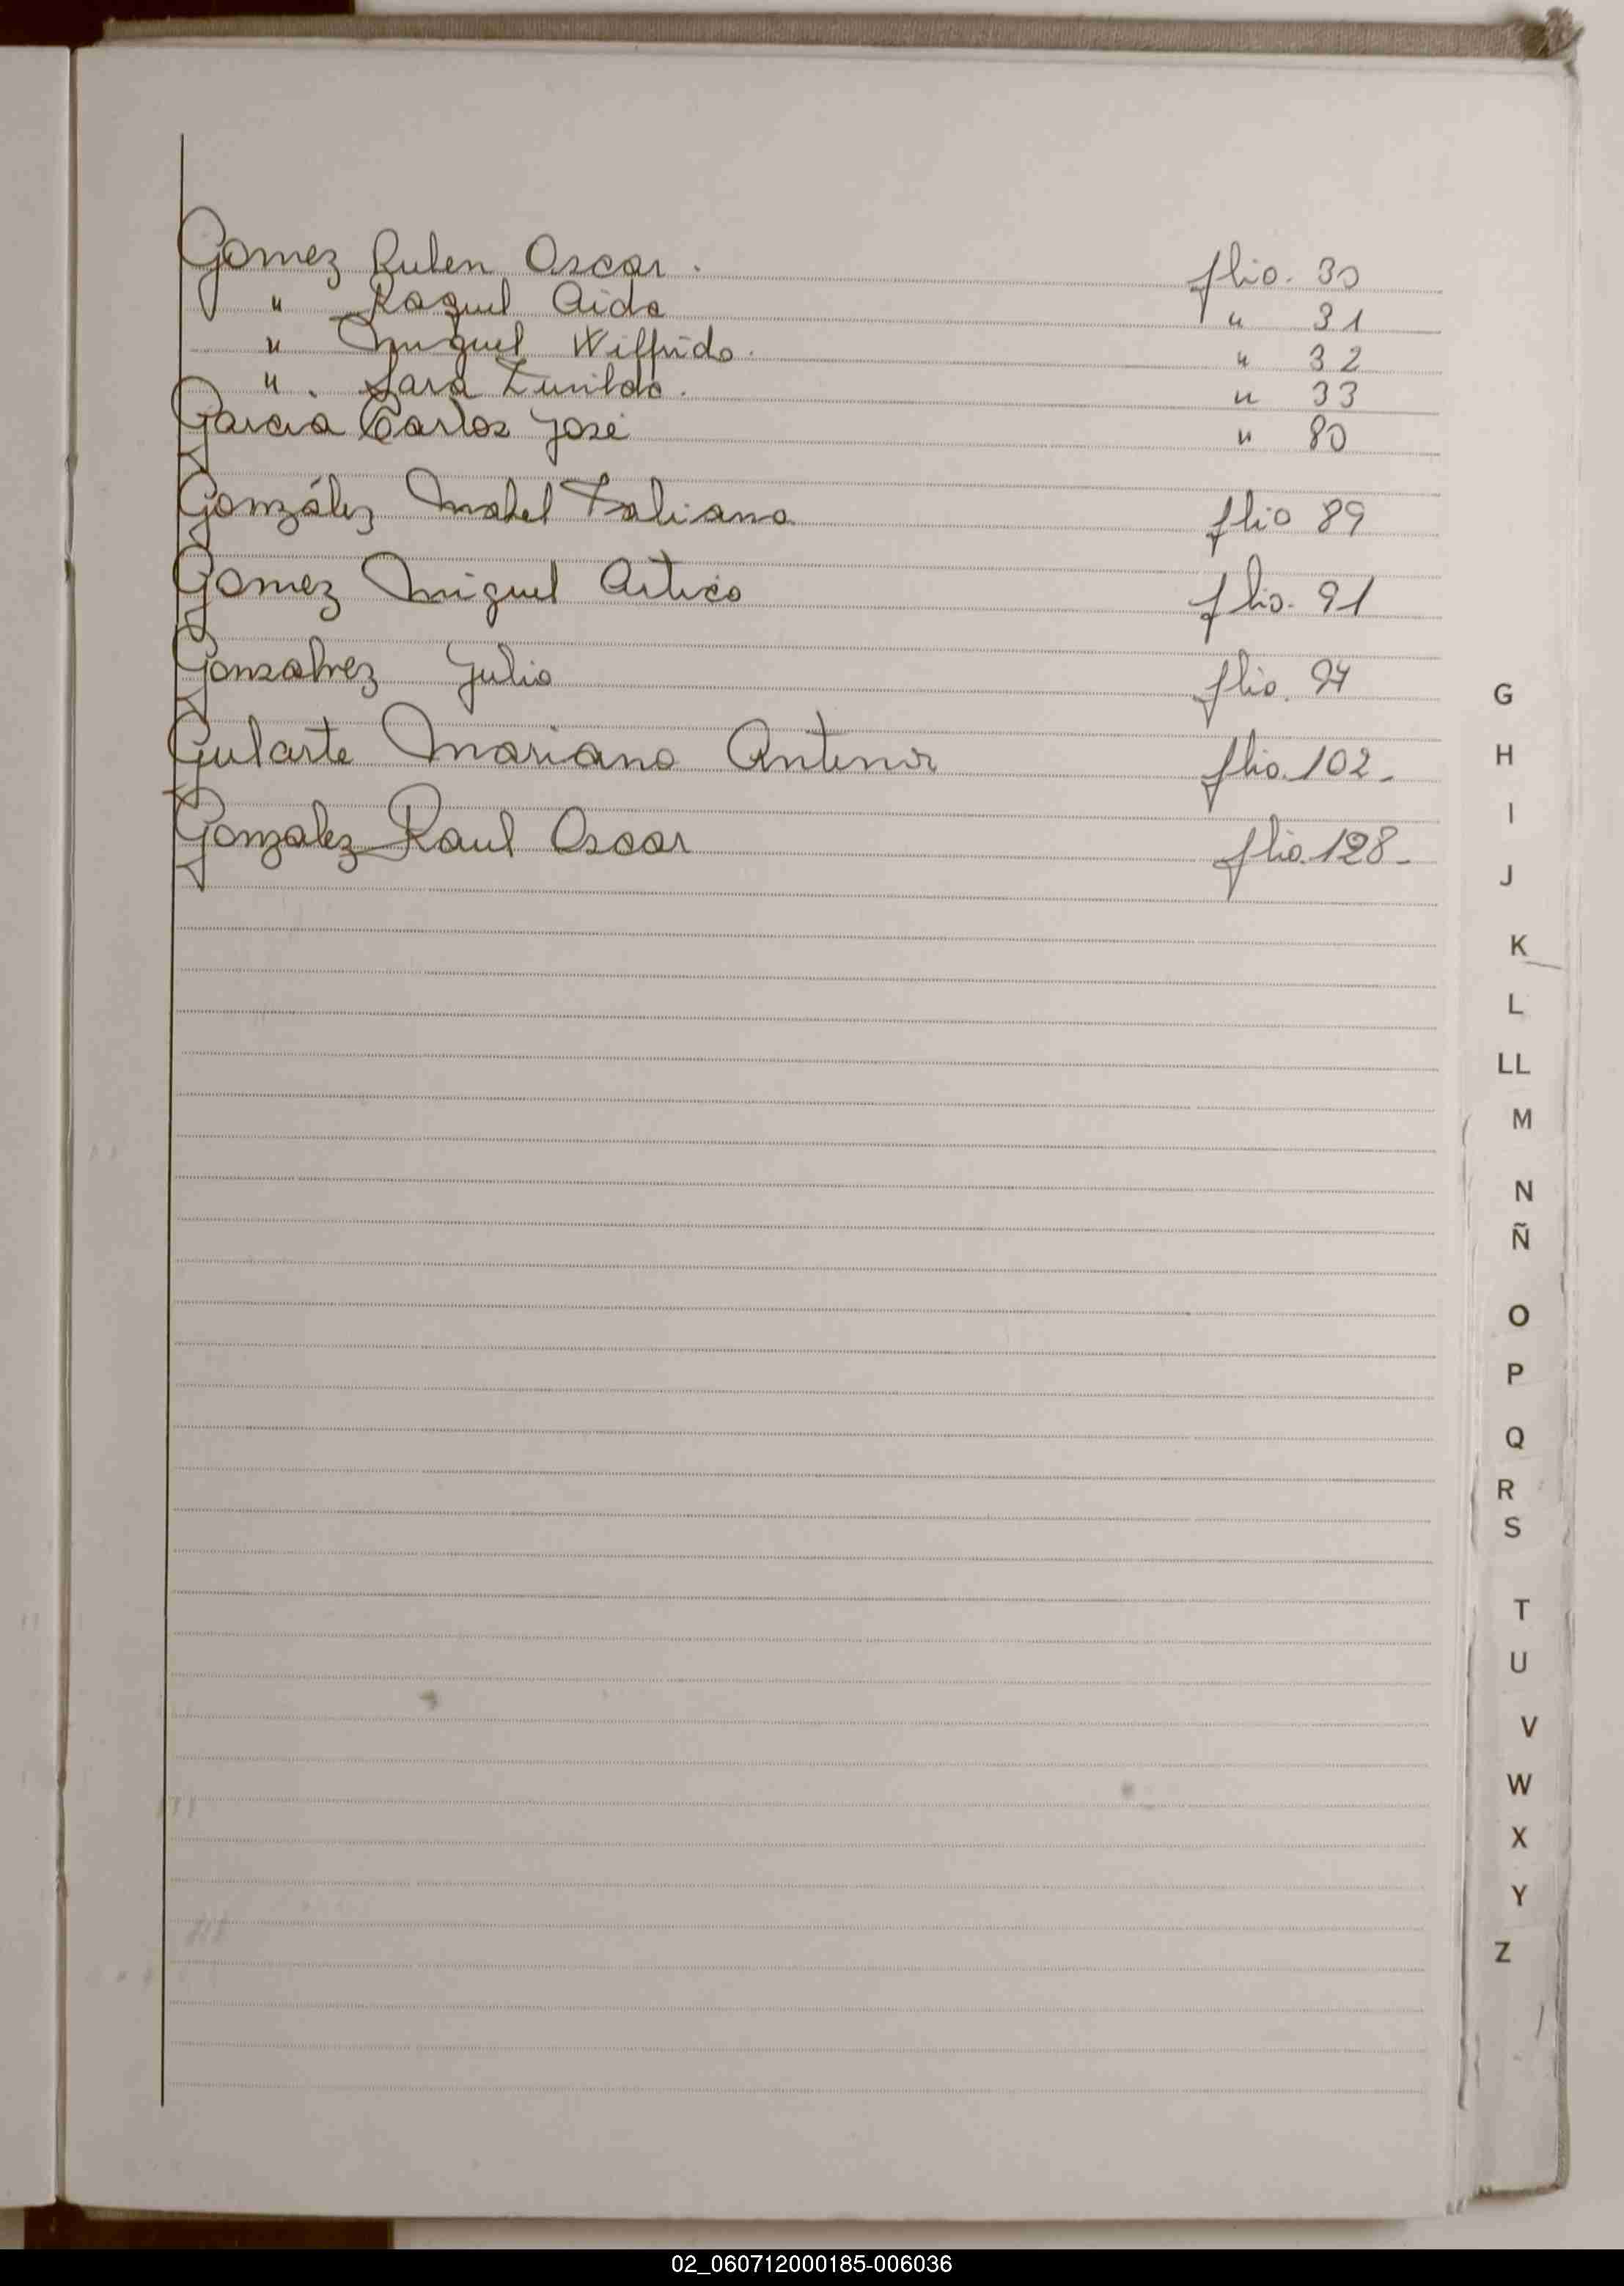 Gomez Ruben Oscar. flio. 30
" Raquel Aida " 31
" Miguel Wilfrido. " 32
". Sara Zunilda. " 33
Garcia Carlos José " 80
González Mabel Fabiana flio 89
Gomez Miguel flio. 91
Gonsalvez Julio flio. 94
Gularte Mariano Antenor flio. 102-
Gonzalez Raul Oscar flio. 128-
G
H
I
J
K
L
LL
M
N
Ñ
O
P
Q
R
S
T
U
V
W
X
Y
Z
02_060712000185-006036